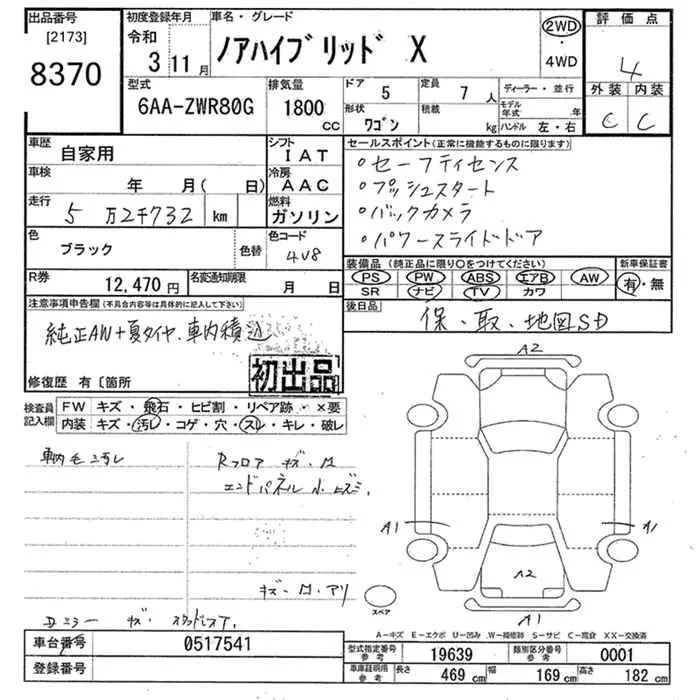 出品番号
[2173]
8370
初度登録年月
令和
3 11月
車名・グレード
ノアハイブリッド X
2WD
・
4WD
評価点
4
外装 内装
C C
型式
6AA-ZWR80G
排気量
1800
cc
ドア 5
定員 7 人
形状 ワゴン
積載 kg
ディーラー・並行
モデル年式 年
ハンドル 左・右
車歴 自家用
シフト IAT
車検 年 月( 日)
冷房 AAC
走行 5 万2千732 km
燃料 ガソリン
色 ブラック
色替
色コード 4V8
R券 12,470 円
名変通知期限 月 日
セールスポイント(正常に機能するものに限ります)
・セーフティセンス
・プッシュスタート
・バックカメラ
・パワースライドドア
装備品(純正品に限り○をつけてください)
PS PW ABS エアB AW
SR ナビ TV カワ
新車保証書
有・無
後日品
保、取、地図SD
注意事項申告欄(不具合内容等は具体的に記入して下さい)
純正AW+夏タイヤ、車内積込
初出品
修復歴 有〔箇所
検査員記入欄
FW キズ・飛石・ヒビ割・リペア跡・×要
内装 キズ・汚レ・コゲ・穴・スレ・キレ・破レ
Rフロア キズ・
エンドパネル
A2
A1
A1
A2
A1
スペア
A-キズ E-エクボ U-凹み W-補修跡 S-サビ C-腐食 XX-交換済
車台番号 0517541
登録番号
型式指定番号 参考 19639
類別区分番号 参考 0001
車庫証明用 参考
長さ 469 cm
幅 169 cm
高さ 182 cm